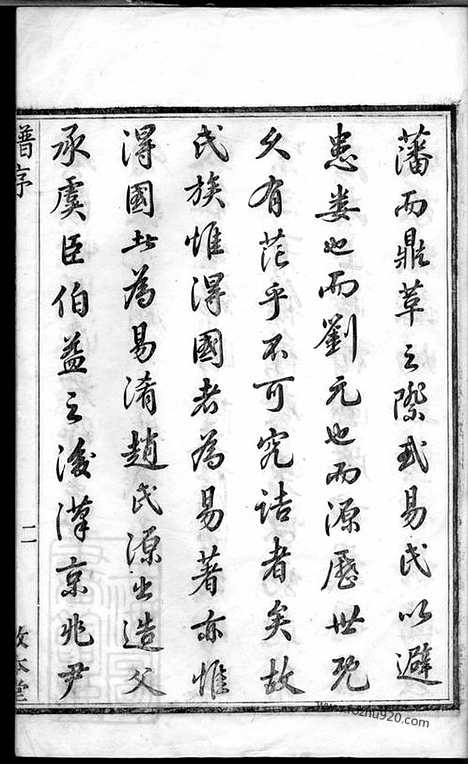 藩而鼎革之際或易氏以避
患娄也而劉元也而源歷世既
久有茫乎不可究詰者矣故
氏族惟得國者為易著亦惟
得國者為易淆趙氏源出造父
承虞臣伯益之後漢京兆尹
譜序
二
敦本堂
www.fozhu920.com